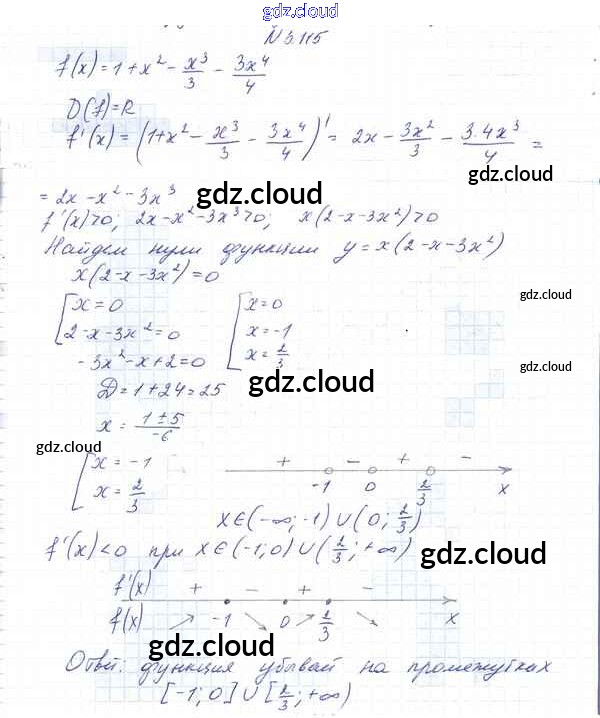 gdz.cloud
№ 3.115
f(x) = 1 + x² - x³/3 - 3x⁴/4
D(f) = R
f'(x) = (1 + x² - x³/3 - 3x⁴/4)' = 2x - 3x²/3 - 3·4x³/4 =
gdz.cloud
= 2x - x² - 3x³
gdz.cloud
f'(x) > 0; 2x - x² - 3x³ > 0; x(2 - x - 3x²) > 0
Найдем нули функции y = x(2 - x - 3x²)
x(2 - x - 3x²) = 0
gdz.cloud
[ x = 0 [ x = 0
2 - x - 3x² = 0 x = -1
-3x² - x + 2 = 0 x = 2/3
D = 1 + 24 = 25
gdz.cloud
x = (1 ± 5)/-6
gdz.cloud gdz.cloud
[ x = -1 + - + -
x = 2/3 -1 0 2/3 x
x ∈ (-∞; -1) ∪ (0; 2/3)
f'(x) < 0 при x ∈ (-1; 0) ∪ (2/3; +∞)
gdz.cloud
f'(x) + - + -
f(x) ↗ -1 ↘ 0 ↗ 2/3 ↘ x
gdz.cloud
Ответ: функция убывай на промежутках
[-1; 0] ∪ [2/3; +∞)
gdz.cloud